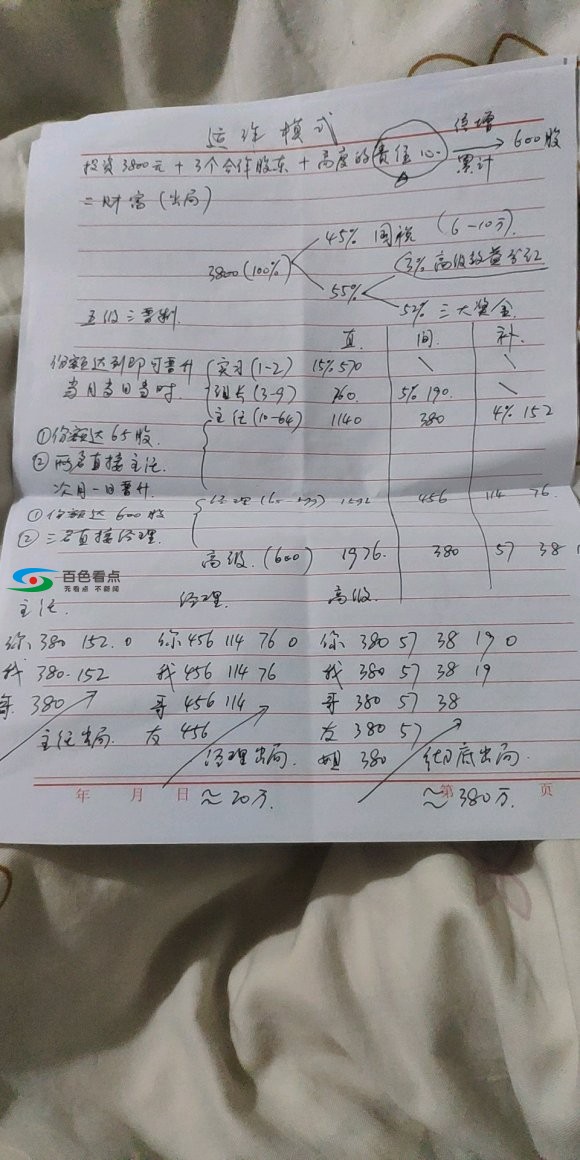 运作模式
投资3800元+3个合作股东+高度的责任心 倍增 累计 → 600股
=财富(出局)
3800(100%)
45% 国税 (6-10万)
55%
3% 高级效益分红
52% 三大奖金
五级三晋制
直 间 补
份额达到即可晋升 实习(1-2) 15% 570 \ \
当月当日当时 组长(3-9) 760 5% 190 \
主任(10-64) 1140 380 4% 152
①份额达65股
②两名直接主任
次月一日晋升
①份额达600股 经理 456 114 76
②三名直接经理
高级(600) 1976 380 57 38
百色看点
无看点 不新闻
主任 经理 高级
你 380 152 0 你 456 114 76 0 你 380 57 38 19 0
我 380 152 我 456 114 76 我 380 57 38 19
哥 380 哥 456 114 哥 380 57 38
主任出局 友 456 友 380 57
经理出局 姐 380 彻底出局
年 月 日 ≈20万 ≈380万 第 页